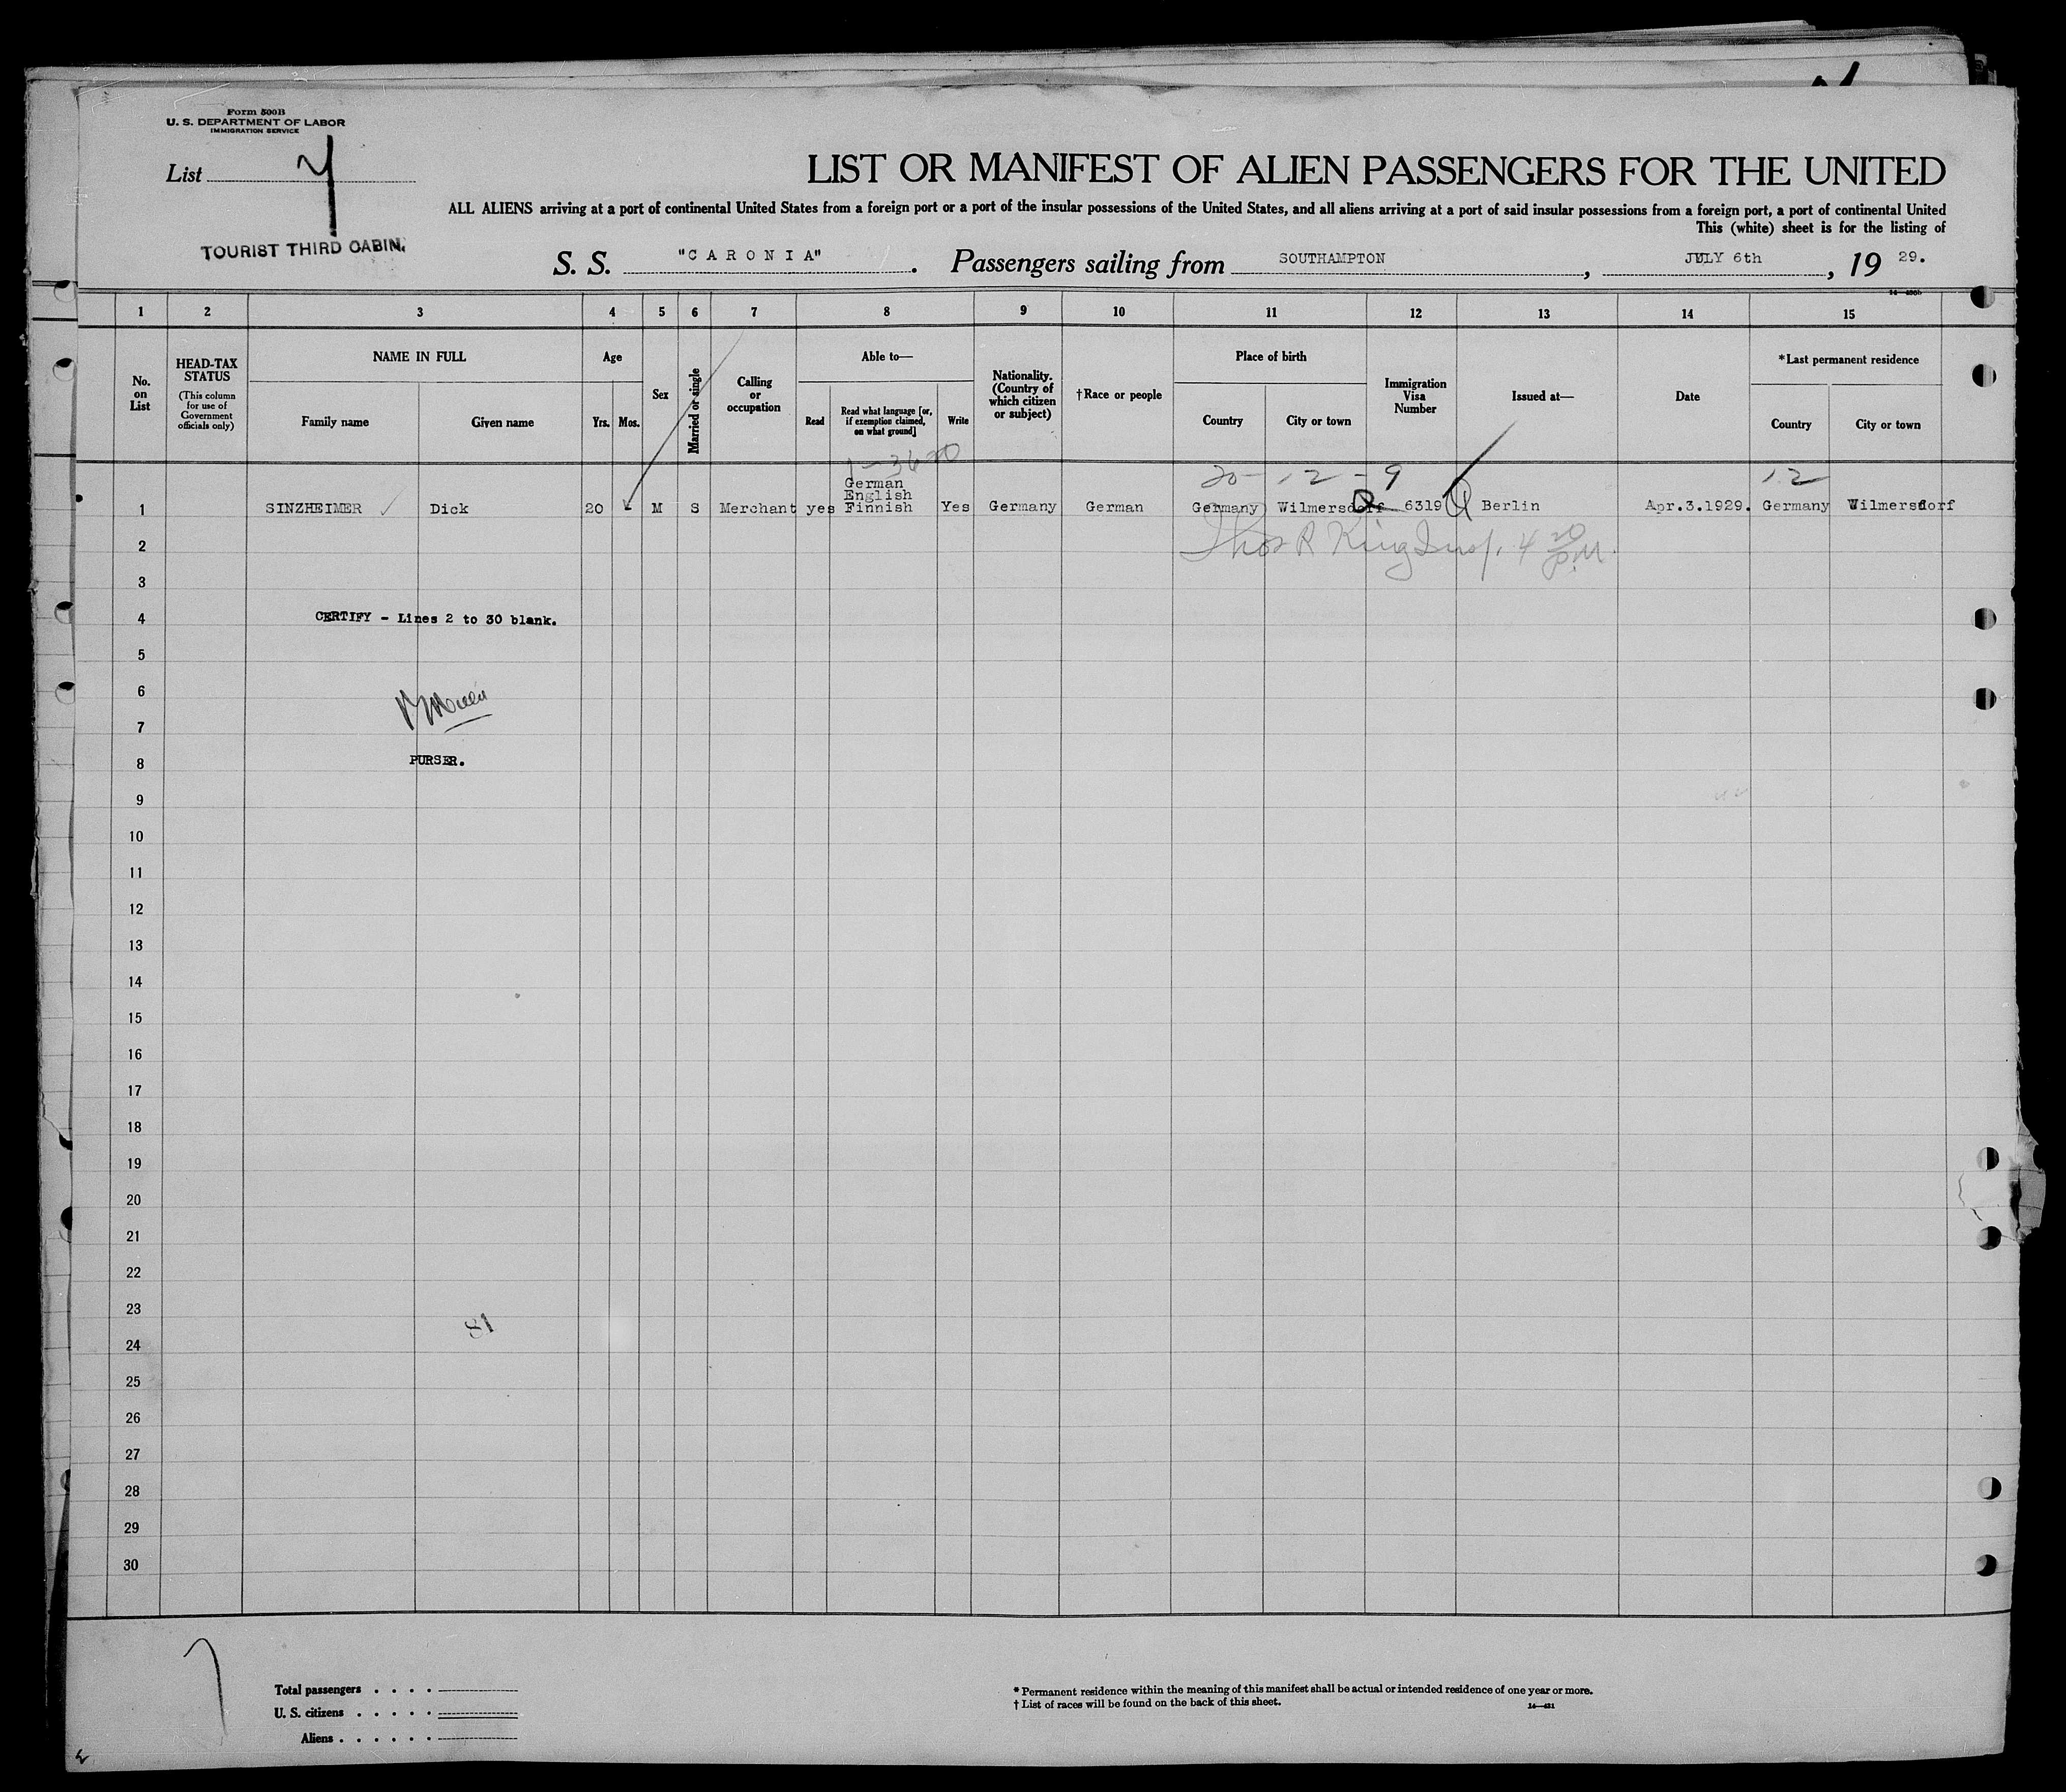 Form 500B
U. S. DEPARTMENT OF LABOR
IMMIGRATION SERVICE
List
LIST OR MANIFEST OF ALIEN PASSENGERS FOR THE UNITED
ALL ALIENS arriving at a port of continental United States from a foreign port or a port of the insular possessions of the United States, and all aliens arriving at a port of said insular possessions from a foreign port, a port of continental United
This (white) sheet is for the listing of
TOURIST THIRD CABIN.
S. S. "CARONIA" . Passengers sailing from SOUTHAMPTON , JULY 6th , 19 29.
1 2 3 4 5 6 7 8 9 10 11 12 13 14 15
No. on List
HEAD-TAX STATUS
(This column for use of Government officials only)
NAME IN FULL
Family name Given name
Age
Yrs. Mos.
Sex
Married or single
Calling or occupation
Able to—
Read
Read what language [or, if exemption claimed, on what ground]
Write
Nationality. (Country of which citizen or subject)
†Race or people
Place of birth
Country City or town
Immigration Visa Number
Issued at—
Date
*Last permanent residence
Country City or town
20 - 12 - 9
12
1 SINZHEIMER Dick 20 M S Merchant yes German English Finnish Yes Germany German Germany Wilmersdorf 6319 Berlin Apr.3.1929. Germany Wilmersdorf
2
Thos R King Insp. 4 20 P.M.
3
4 CERTIFY - Lines 2 to 30 blank.
5
6
7
8 PURSER.
9
10
11
12
13
14
15
16
17
18
19
20
21
22
23
81
24
25
26
27
28
29
30
Total passengers
U. S. citizens
Aliens
* Permanent residence within the meaning of this manifest shall be actual or intended residence of one year or more.
† List of races will be found on the back of this sheet.